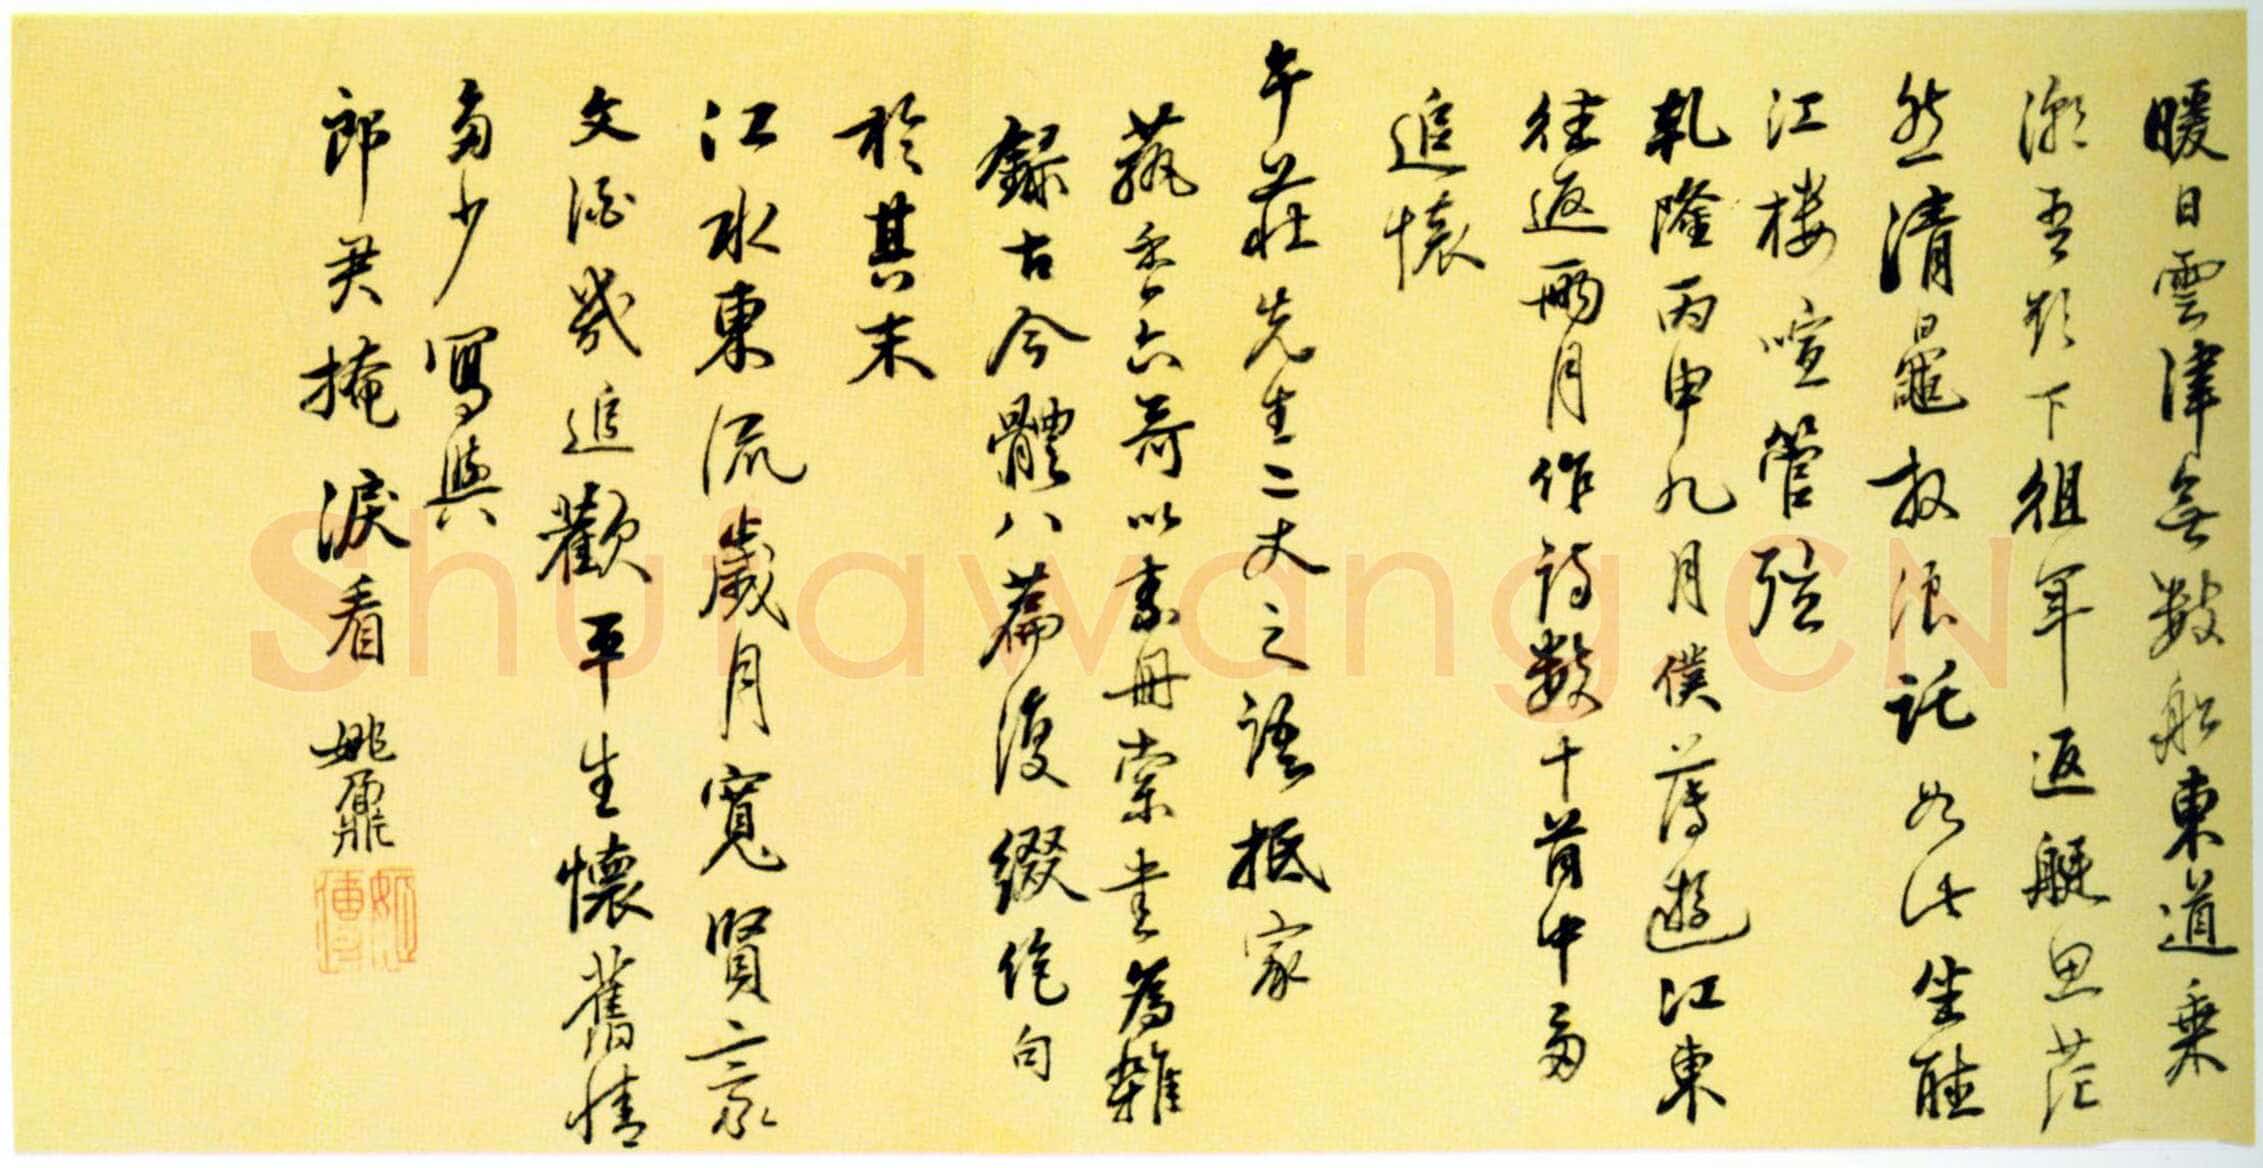 暖日雲津無數船東道乘
潮吾欲下徂年返艇思茫
然清鼂放浪託如此坐聽
江樓喧管弦
乹隆丙申九月僕薄遊江東
往返兩月作詩數十首中多
追懷
午莊先生二丈之語抵家
蓺香六哥以素冊索書為雜
錄古今體八篇復綴絶句
於其末
江水東流歲月寬賢豪
文酒幾追歡平生懷舊情
多少寫與
郎君掩淚看 姚鼐
姬傳
Shufawang.CN